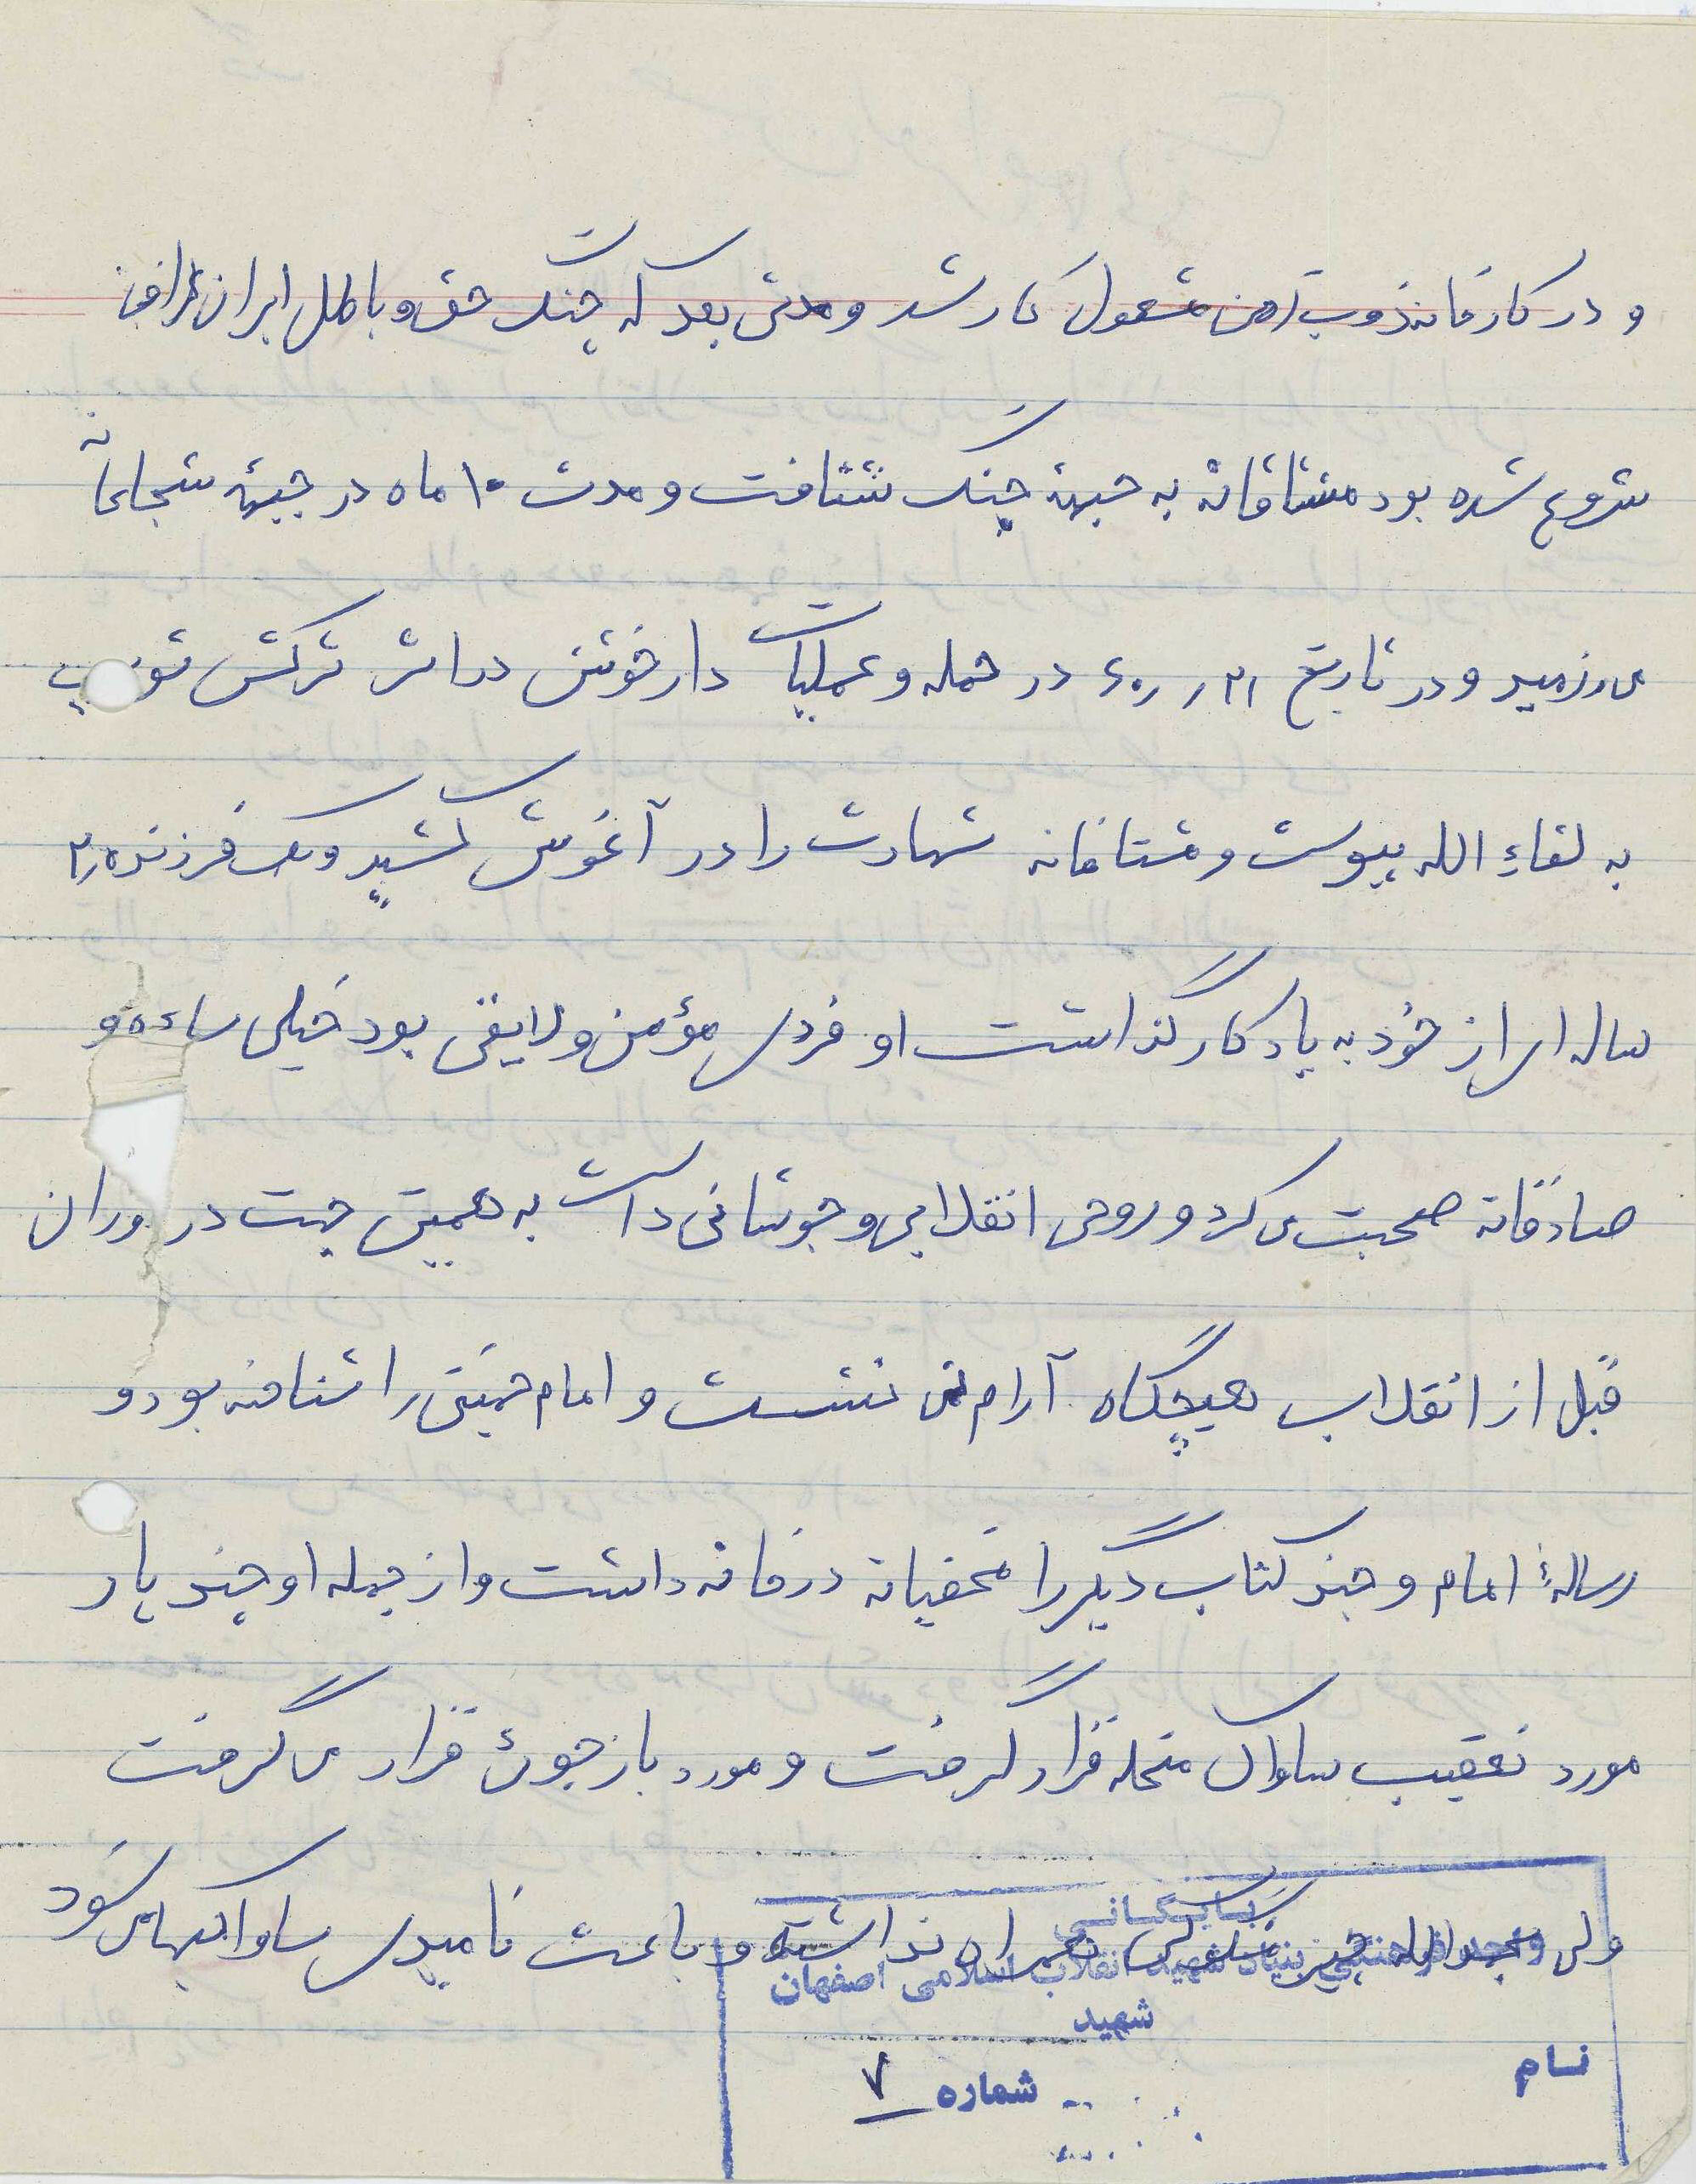 و در کارخانه ذوب آهن مشغول کار شد و مدتی بعد که جنگ حق و باطل ایران عراق
شروع شده بود مشتاقانه به جبههٔ جنگ شتافت و مدت ۱۰ ماه در جبههٔ شجاعانه
می رزمید و در تاریخ ۲۱ ر ر ۶۰ در حمله و عملیات دارخوئین در اثر ترکش توپ
به لقاءِ الله پیوست و مشتاقانه شهادت را در آغوش کشید و یک فرزنده ۲٫۵
ساله ای از خود به یادگار گذاشت او فردی مؤمن و لایقی بود خیلی ساده و
صادقانه صحبت می کرد و روحی انقلابی و جوشانی داشت به همین جهت در دوران
قبل از انقلاب هیچگاه آرام نمی نشست و امام خمینی را شناخته بود و
رسالهٔ امام و چند کتاب دیگر را مخفیانه در خانه داشت و از جمله او چند بار
مورد تعقیب ساواک محله قرار گرفت و مورد بازجوئی قرار می گرفت
ولی بحمدالله چیز مشکوکی همراه نداشته و باعث نامیدی ساواکیها می شود
بایگانی
واحد فرهنگی بنیاد شهید انقلاب اسلامی اصفهان
شهید
نام
شماره ۷